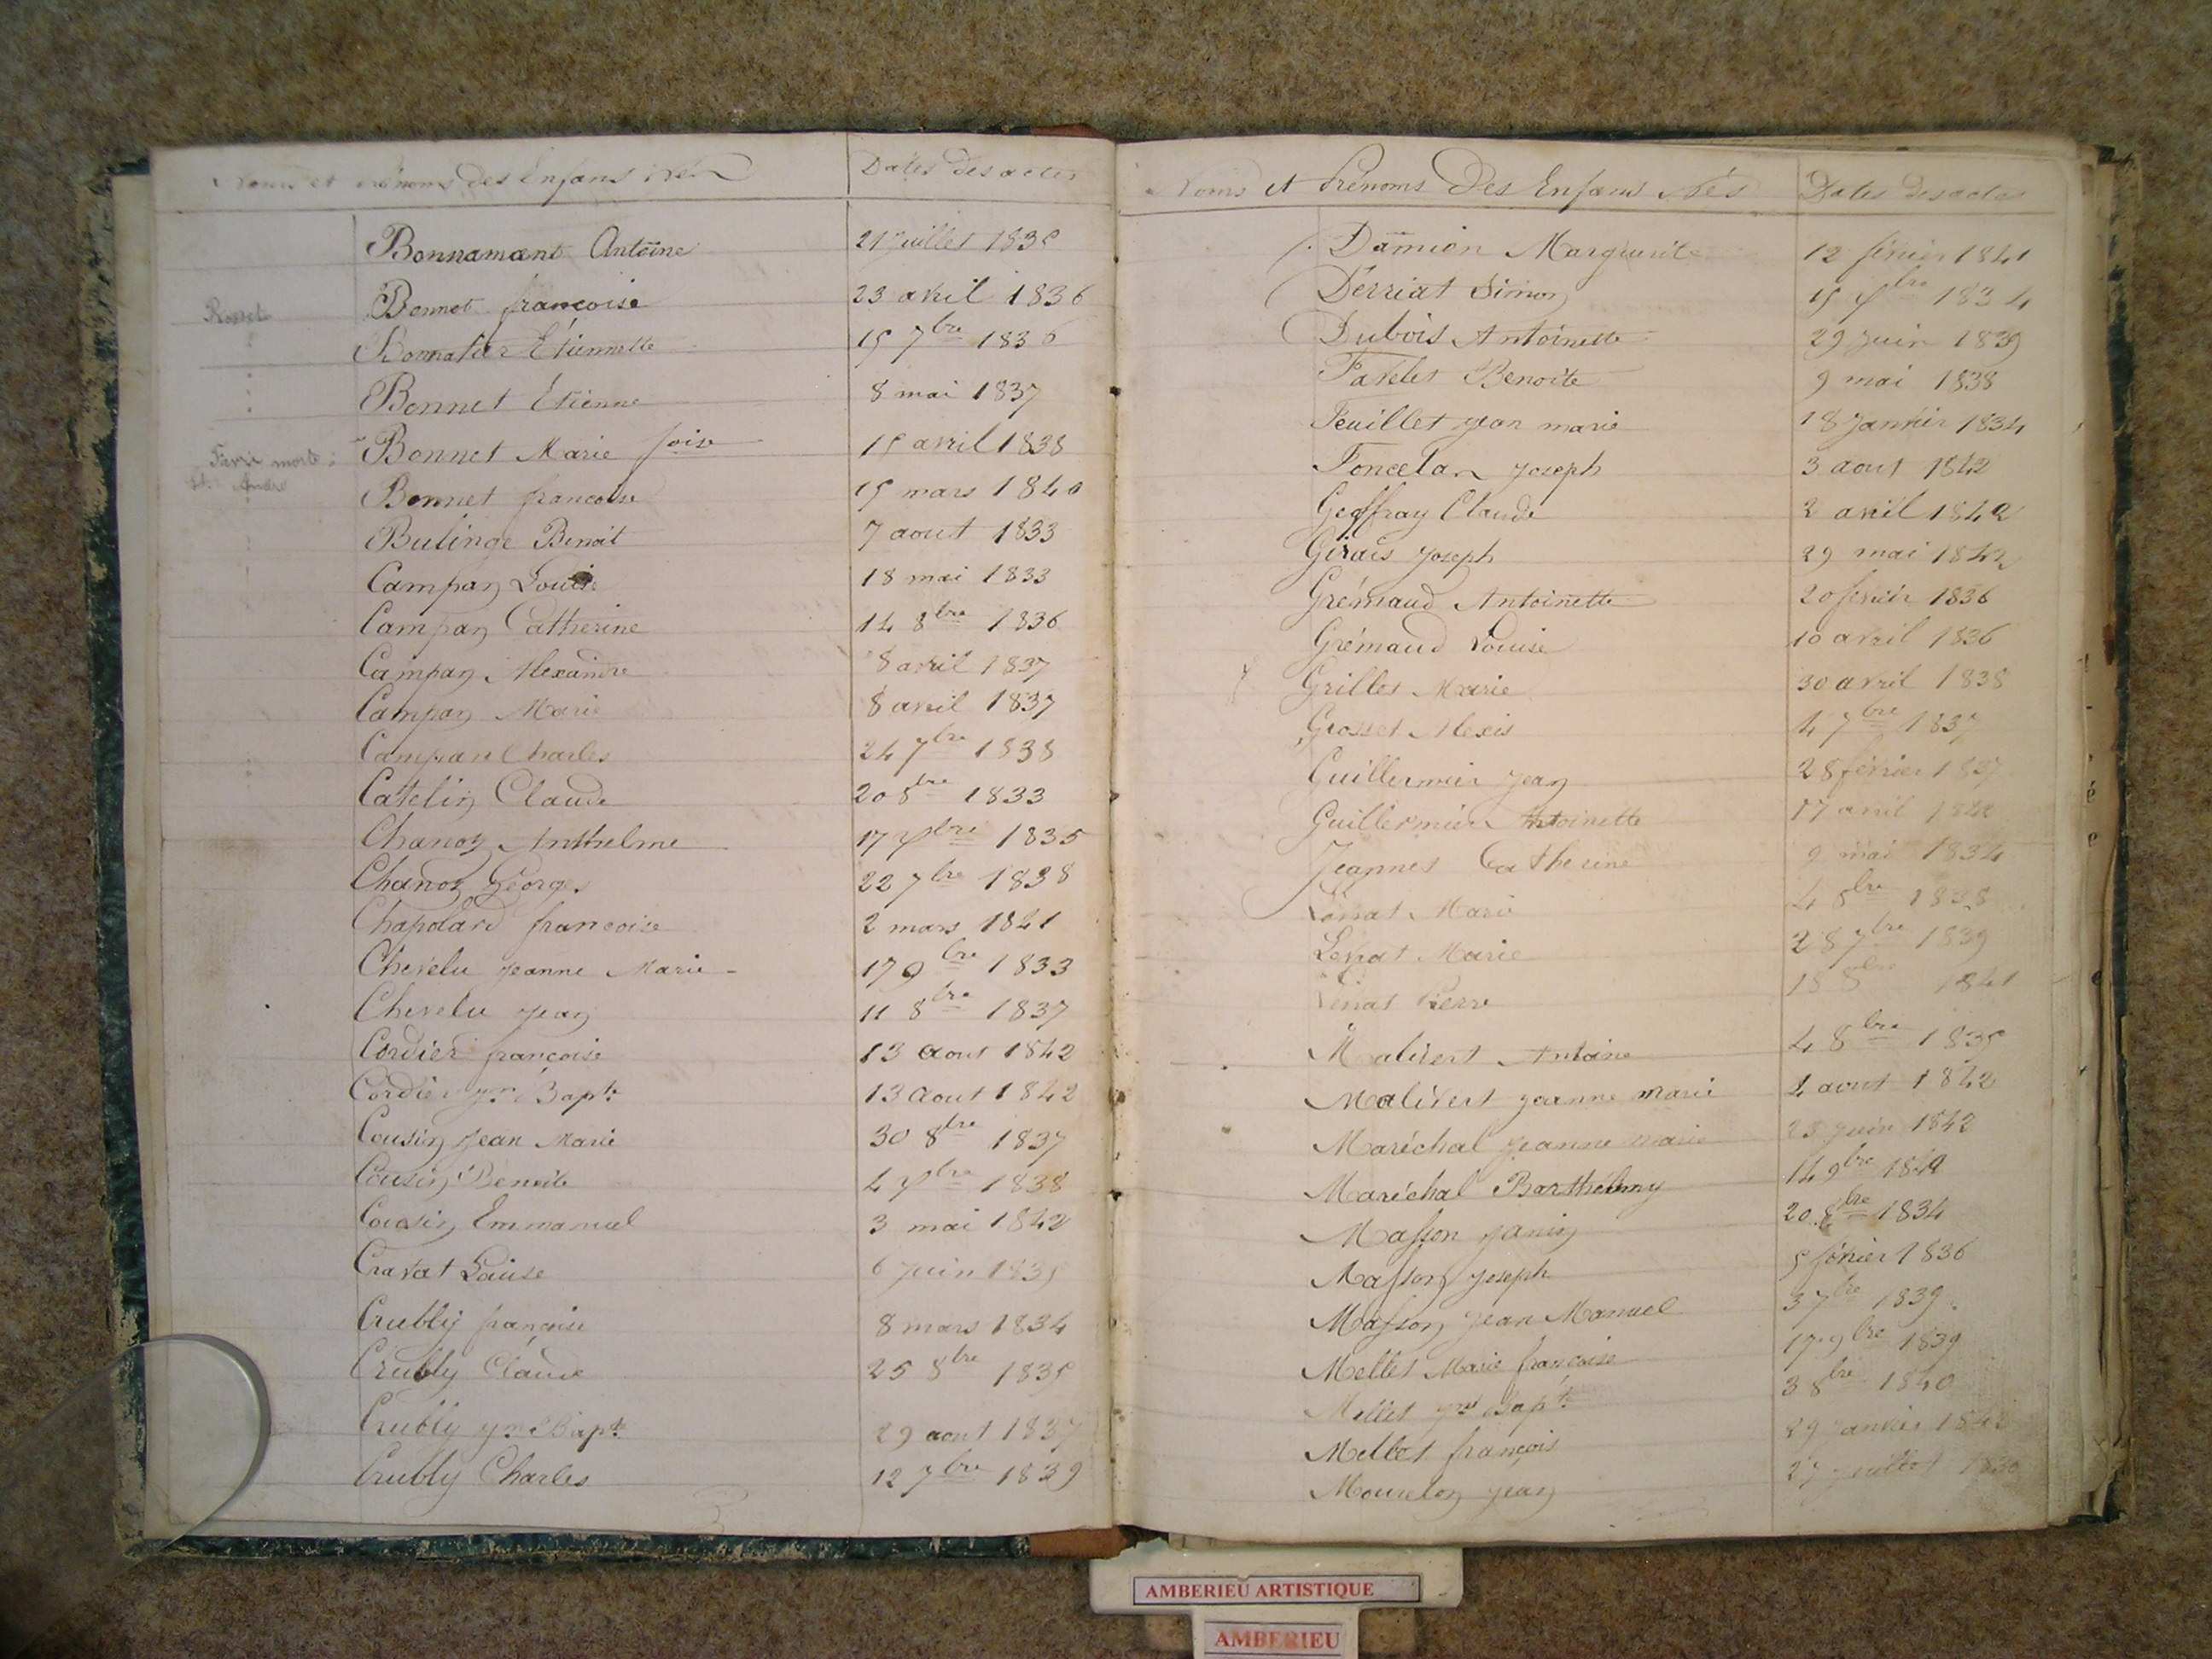 Noms et Prénoms des Enfans Nés Dates des actes
Bonnamant Antoine 21 juillet 1835
Rosset
Bonnet françoise 23 avril 1836
Bonnatier Étiennette 15 7bre 1836
Bonnet Etienne 8 mai 1837
Bonnet Marie foise 15 avril 1838
morte
Bonnet francoise 15 mars 1840
Bulinge Benoit 7 aout 1833
Campan Louise 18 mai 1833
Campan Catherine 14 8bre 1836
Campan Alexandre 8 avril 1837
Campan Marie 8 avril 1837
Campan Charles 24 7bre 1838
Catelin Claude 20 8bre 1833
Chanoz Anthelme 17 Xbre 1835
Chanoz George 22 7bre 1838
Chapolard francoise 2 mars 1841
Chevelu jeanne Marie 17 9bre 1833
Chevelu jean 11 8bre 1837
Cordier françoise 13 aout 1842
Cordier jn Bapte 13 aout 1842
Cousin jean Marie 30 8bre 1837
Cousin Benoite 4 Xbre 1838
Cousin Emmanuel 3 mai 1842
Cravat Louise 6 juin 1835
Crubly françoise 8 mars 1834
Crubly Claude 25 8bre 1835
Crubly jn Bapte 29 aout 1837
Crubly Charles 12 7bre 1839
Noms et Prénoms Des Enfans Nés Dates des actes
Damion Marguerite 12 février 1841
Derriat Simon 15 Xbre 1834
Dubois Antoinette 29 juin 1839
Favelet Benoite 9 mai 1838
Feuillet jean marie 18 janvier 1834
Foncelan joseph 3 aout 1842
Geoffray Claude 2 avril 1842
Girais joseph 29 mai 1842
Grémaud Antoinette 20 février 1836
Grémaud Louise 10 avril 1836
Grillet Marie 30 avril 1838
Grosset Alexis 4 7bre 1837
Guillermier jean 28 février 1837
Guillermier Antoinette 17 avril
Jeannet Catherine 9 mai 1834
Lénat Marie 4 8bre 1838
Lenat Marie 28 7bre 1839
Lénat Pierre 1841
Malivert Antoine 4 8bre 1835
Malivert jeanne marie 4 aout 1842
Maréchal jeanne marie 25 juin 1842
Maréchal Barthélemy 14 9bre 1842
Masson janin 20 8bre 1834
Masson joseph 5 février 1836
Masson jean Manuel 3 7bre 1839
Mellet Marie françoise 17 9bre 1839
Mellet jn Bapte 3 8bre 1840
Mellet françois 29 janvier 1842
Mourelon jean 27 juillet
AMBERIEU ARTISTIQUE
AMBERIEU